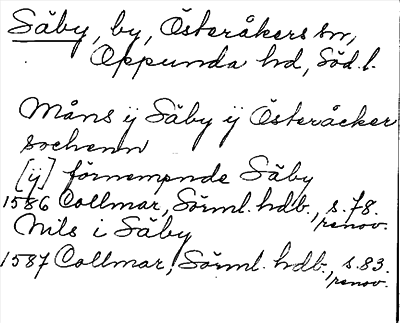 Säby, by, Österåkers sn,
Oppunda hd, Söd.l.
Måns ÿ Säby ÿ Österåcker
sochenn
[ÿ] förnempnde Säby
1586 Collmar, Sörml. hdb., s. 78.
renov.
Nils i Säby
1587 Collmar, Sörml. hdb., s. 83.
renov.